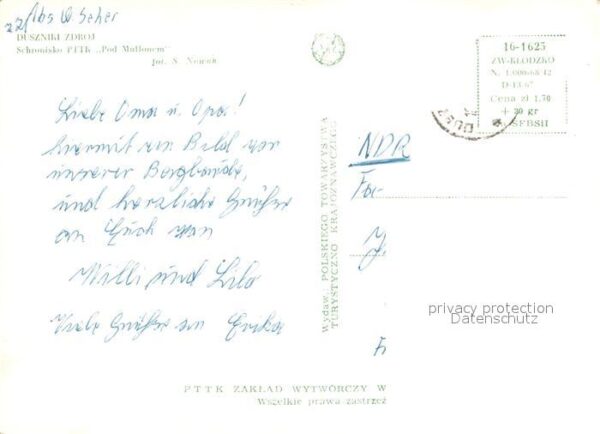 Abs W. Seher
DUSZNIKI ZDRÓJ
Schronisko PTTK „Pod Muflonem”
fot. S. Nowak
Liebe Oma u. Opa!
hiermit ein Bild von
unserer Bergbaude,
und herzliche Grüße
an Euch von
Willi und Lilo
Viele Grüße an Erika
PTTK ZAKŁAD WYTWÓRCZY W
Wszelkie prawa zastrzeż
Wydaw. POLSKIEGO TOWARZYSTWA
TURYSTYCZNO KRAJOZNAWCZEGO
16-1625
ZW-KŁODZKO
N. 1.000-68/12
D-13/67
Cena zł 1.70
+ 30 gr
SFBSII
DUSZ
NDR
Fa.
J.
F
privacy protection
Datenschutz